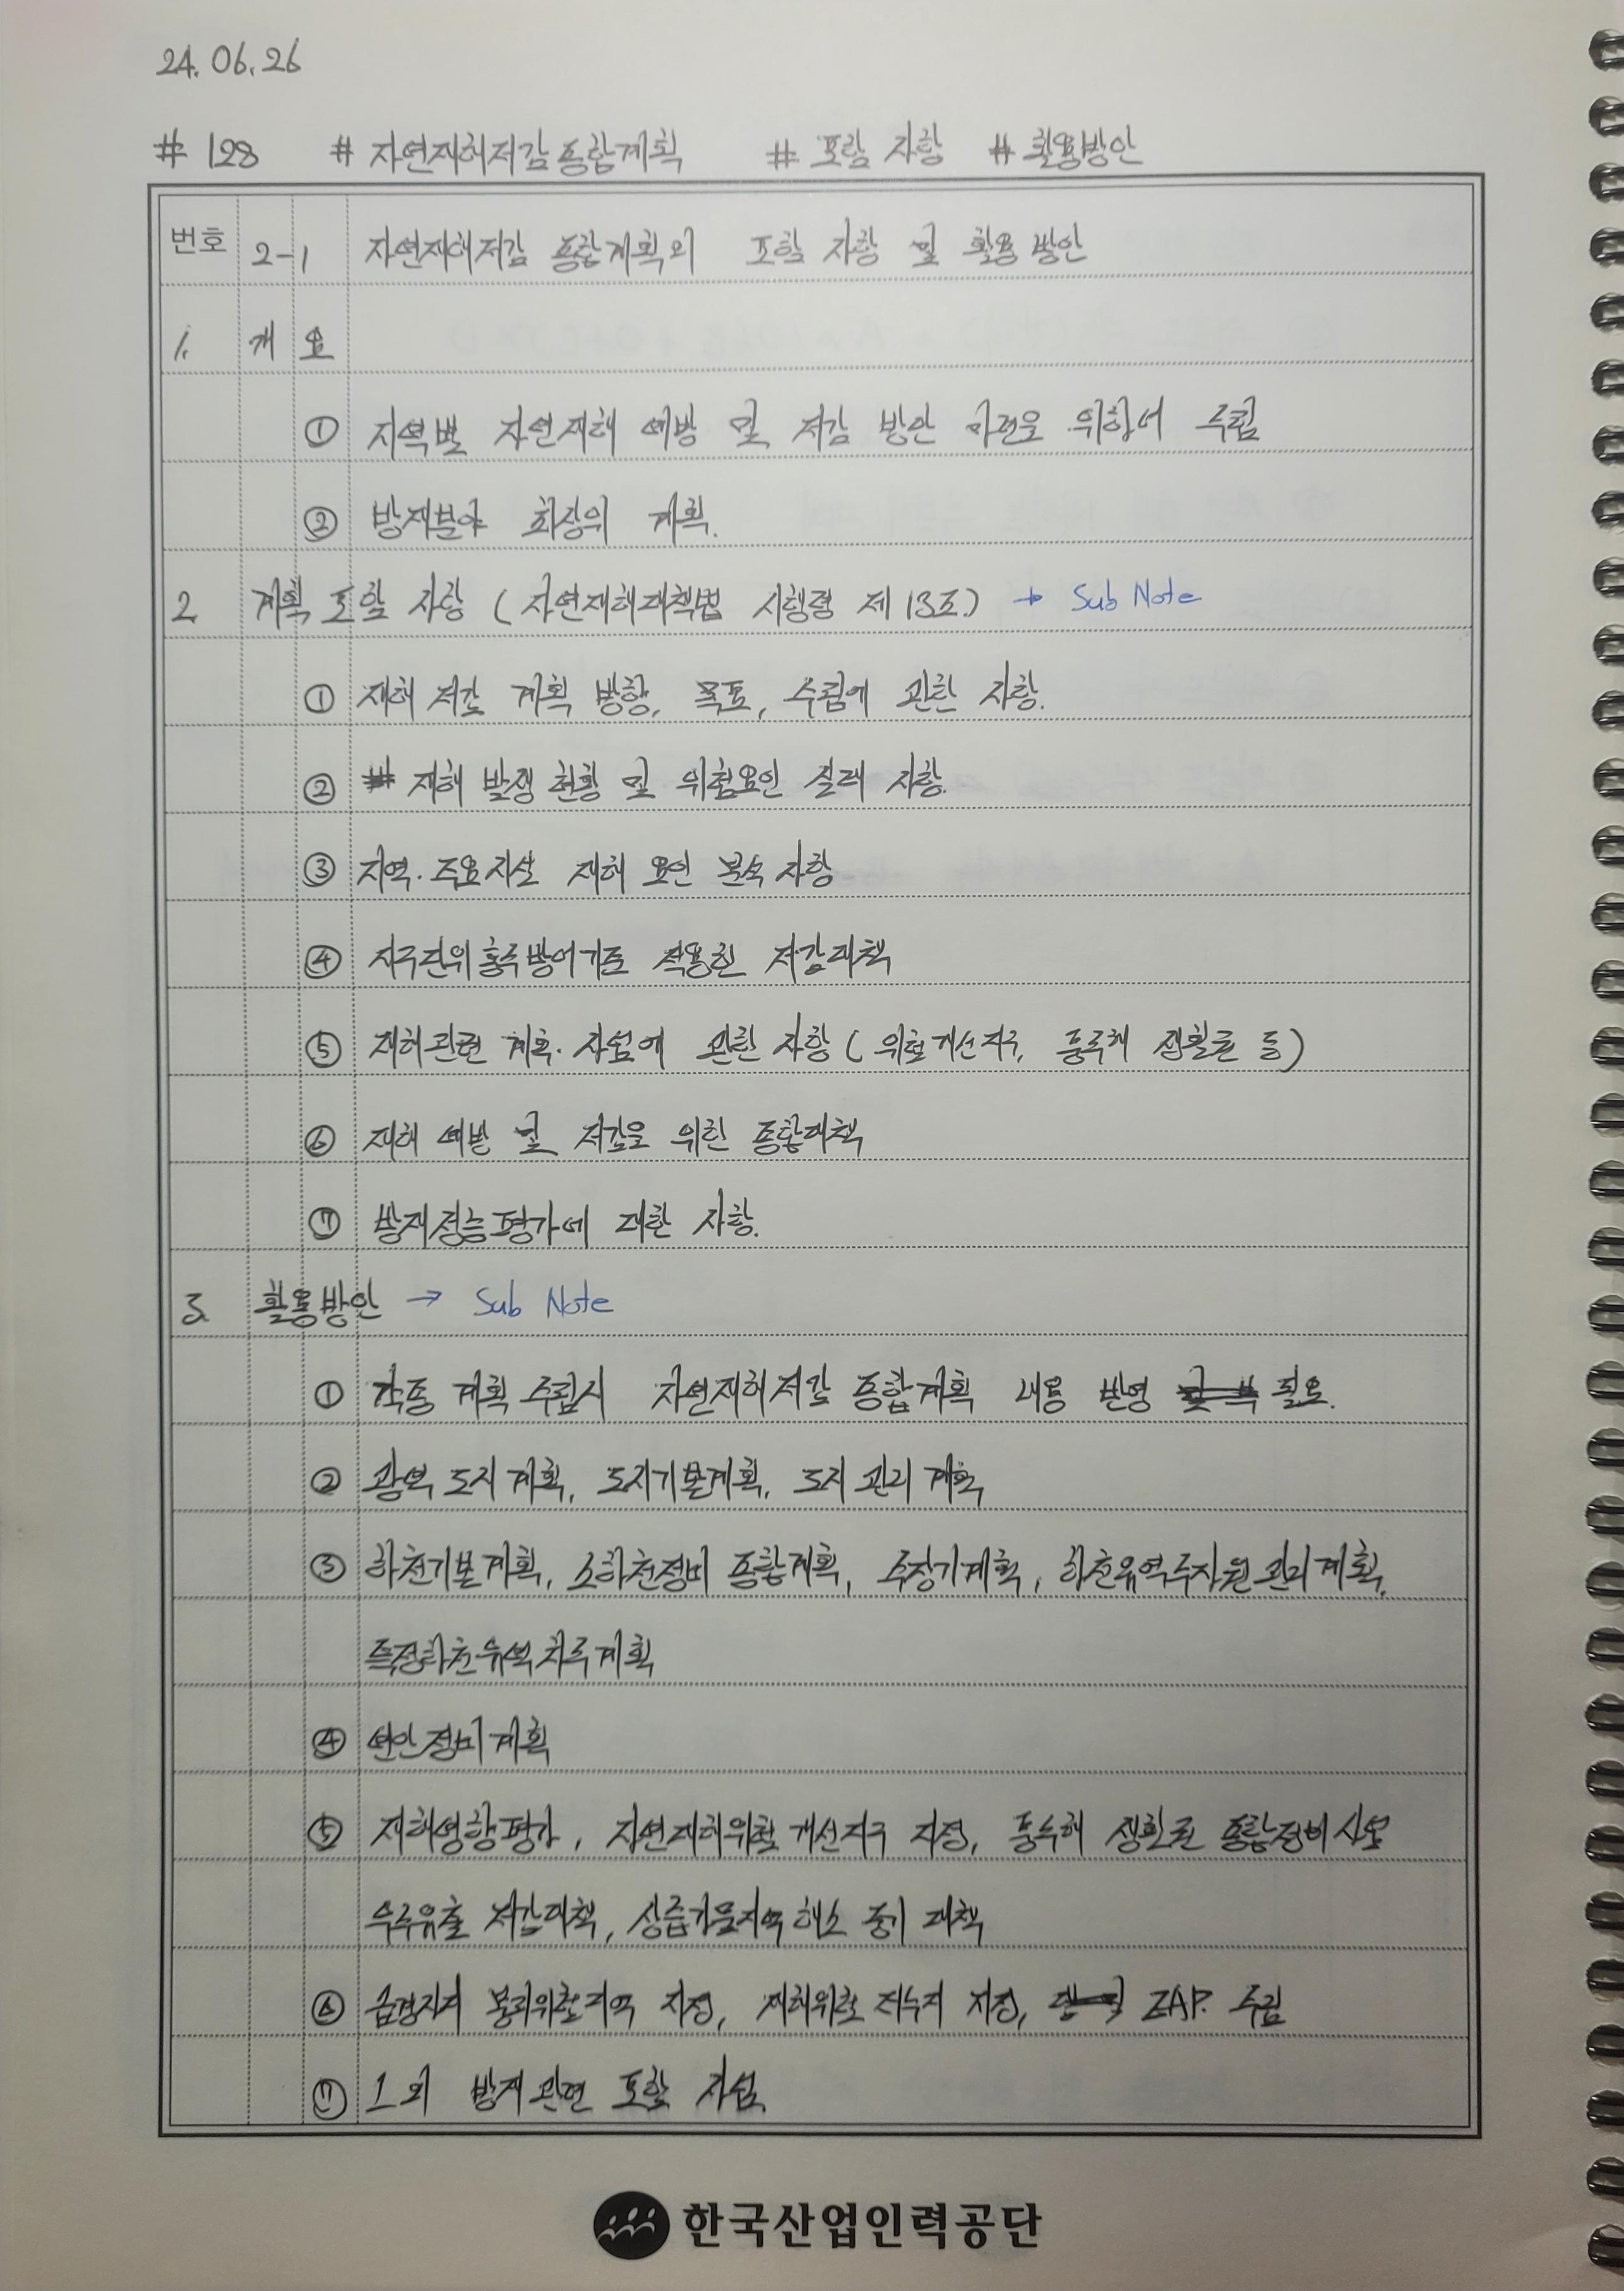 24. 06. 26
# 128 # 자연재해저감 종합계획 # 포함 사항 # 활용방안
번호 2-1 자연재해저감 종합계획의 포함 사항 및 활용 방안
1. 개요
① 지역별 자연재해 예방 및 저감 방안 마련을 위하여 수립
② 방재분야 최상위 계획.
2 계획 포함 사항 (자연재해대책법 시행령 제13조) → Sub Note
① 재해 저감 계획 방향, 목표, 수립에 관한 사항.
② 재해 발생 현황 및 위험요인 실태 사항.
③ 지역·주요시설 재해 요인 분석 사항
④ 지구단위 홍수방어기준 적용한 저감대책
⑤ 재해관련 계획·사업에 관한 사항 (위험개선지구, 풍수해 생활권 등)
⑥ 재해 예방 및 저감을 위한 종합대책
⑦ 방재성능평가에 대한 사항.
3. 활용방안 → Sub Note
① 각종 계획 수립시 자연재해저감 종합계획 내용 반영 필요.
② 광역 도시 계획, 도시기본계획, 도시 관리 계획
③ 하천기본계획, 소하천정비 종합계획, 수장기계획, 하천유역수자원관리계획,
특정하천유역치수계획
④ 연안정비계획
⑤ 재해영향평가, 자연재해위험 개선지구 지정, 풍수해 생활권 종합정비사업
우수유출 저감대책, 상습가뭄지역 해소 중기 대책
⑥ 급경사지 붕괴위험지역 지정, 재해위험 저수지 지정, EAP. 수립
⑦ 그 외 방재관련 포함 사업.
한국산업인력공단